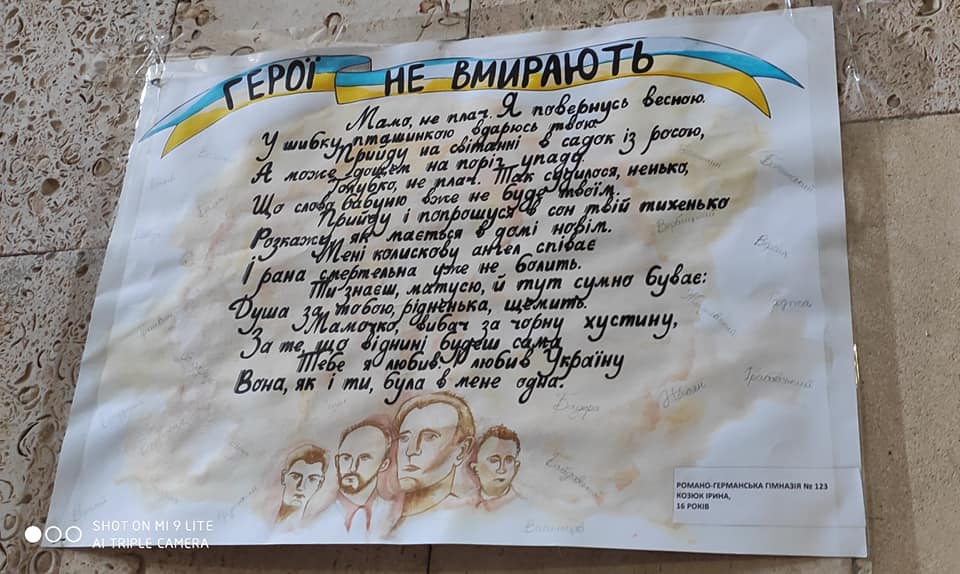 ГЕРОЇ НЕ ВМИРАЮТЬ
Мамо, не плач. Я повернусь весною.
У шибку пташинкою вдарюсь твою.
Прийду на світанні в садок із росою,
А може дощем на поріг упаду.
Голубко, не плач. Так судилося, ненько,
Що слово бабуню вже не буде твоїм.
Прийду і попрошуся в сон твій тихенько
Розкажу, як мається в домі новім.
Мені колискову ангел співає
І рана смертельна уже не болить.
Ти знаєш, матусю, й тут сумно буває:
Душа за тобою, рідненька, щемить.
Мамочко, вибач за чорну хустину,
За те, що віднині будеш сама
Тебе я любив. І любив Україну
Вона, як і ти, була в мене одна.
Вербицький
Бандера
РОМАНО-ГЕРМАНСЬКА ГІМНАЗІЯ № 123
КОЗЮК ІРИНА,
16 РОКІВ
SHOT ON MI 9 LITE
AI TRIPLE CAMERA